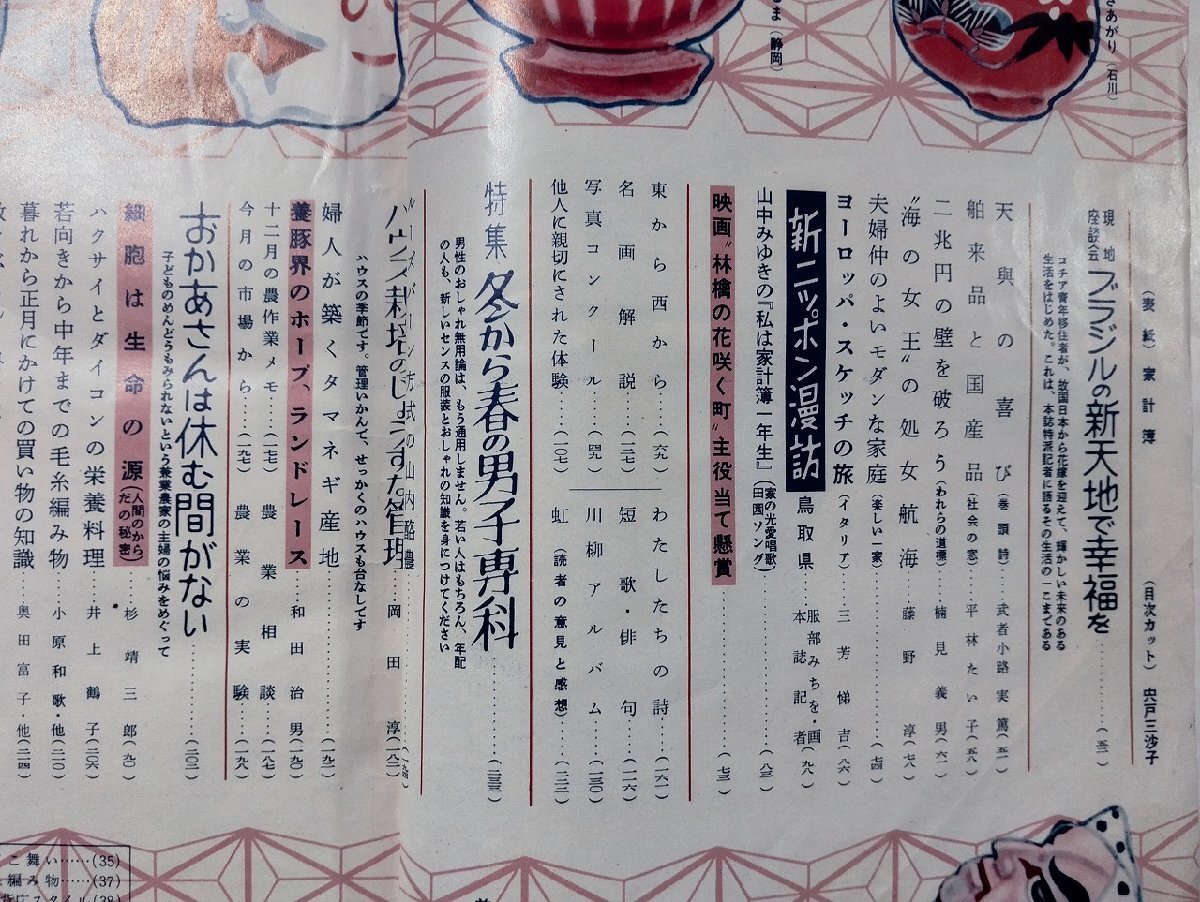 さあがり(石川)
ま(静岡)
(表紙)家計簿
(目次カット)宍戸三沙子
現地座談会 ブラジルの新天地で幸福を……(五一)
コチア青年移住者が、故国日本から花嫁を迎えて、輝かしい未来のある
生活をはじめた。これは、本誌特派記者に語るその生活の一こまである
天與の喜び(巻頭詩)……武者小路実篤(五一)
舶来品と国産品(社会の窓)……平林たい子(五八)
二兆円の壁を破ろう(われらの道標)……楠見義男(六一)
"海の女王"の処女航海……藤野淳(七八)
夫婦仲のよいモダンな家庭(楽しい一家)……(七四)
ヨーロッパ・スケッチの旅(イタリア)……三芳悌吉(八六)
新ニッポン漫訪 鳥取県 服部みちを・画 本誌記者(九八)
山中みゆきの『私は家計簿一年生』(家の光愛唱歌 日園ソング)……(八三)
映画"林檎の花咲く町"主役当て懸賞……(七三)
東から西から……(六九)
わたしたちの詩……(一六一)
名画解説……(三七)
短歌・俳句……(一一六)
写真コンクール……(四九)
川柳アルバム……(一三〇)
他人に親切にされた体験……(一〇七)
虹(読者の意見と感想)……(一三二)
特集 冬から春の男子専科……(二三三)
男性のおしゃれ無用論は、もう通用しません。若い人はもちろん、年配
の人も、新しいセンスの服装とおしゃれの知識を身につけてください
方式の山内酪農
ハウス栽培のじょうずな管理……岡田淳(一八二)
ハウスの季節です。管理いかんで、せっかくのハウスも台なしです
婦人が築くタマネギ産地……(一九二)
養豚界のホープ、ランドレース……和田治男(一七九)
十二月の農作業メモ……(一七七)
農業相談……(一八七)
今月の市場から……(一九七)
農業の実験……(一九八)
おかあさんは休む間がない……(二〇二)
子どものめんどうもみられないという兼業農家の主婦の悩みをめぐって
細胞は生命の源(人間のからだの秘密)……杉靖三郎(九〇)
ハクサイとダイコンの栄養料理……井上鶴子(二〇六)
若向きから中年までの毛糸編み物……小原和歌・他(二一〇)
暮れから正月にかけての買い物の知識……奥田富子・他(二一四)
こ舞い……(35)
編み物……(37)
背広スタイル(38)